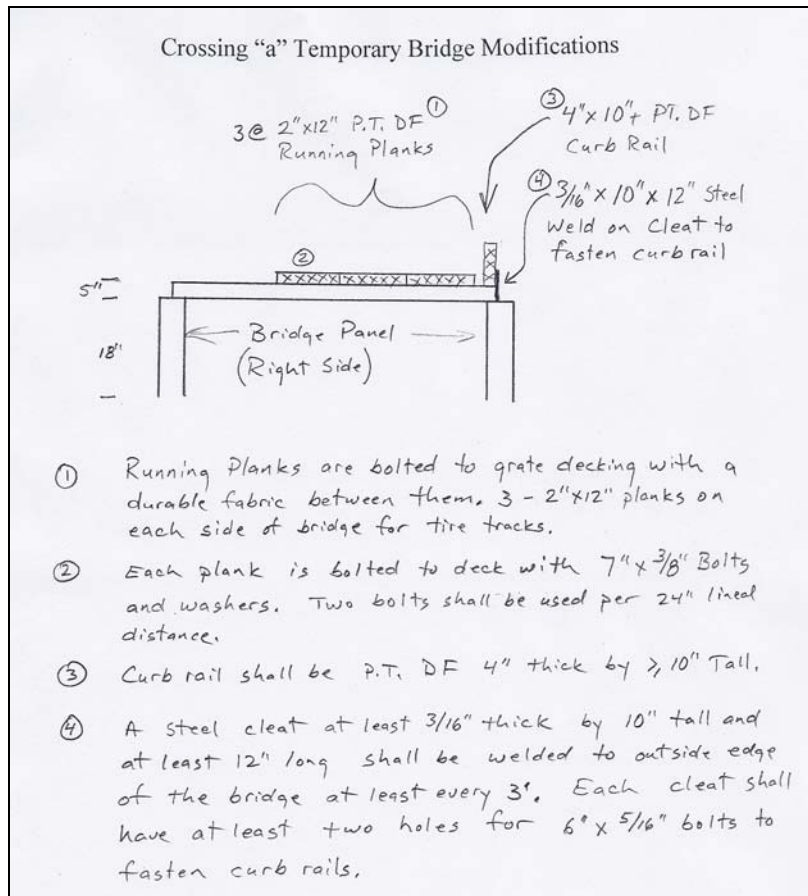 Crossing “a” Temporary Bridge Modifications
3@ 2"x12" P.T. DF ①
Running Planks
③ 4"x10"+ PT. DF
Curb Rail
④ 3/16" x 10" x 12" Steel
Weld on Cleat to
fasten curb rail
②
5"
18"
Bridge Panel
(Right Side)
① Running Planks are bolted to grate decking with a
durable fabric between them. 3 - 2"x12" planks on
each side of bridge for tire tracks.
② Each plank is bolted to deck with 7" x 3/8" Bolts
and washers. Two bolts shall be used per 24" lineal
distance.
③ Curb rail shall be P.T. DF 4" thick by ≥ 10" Tall.
④ A steel cleat at least 3/16" thick by 10" tall and
at least 12" long shall be welded to outside edge
of the bridge at least every 3'. Each cleat shall
have at least two holes for 6" x 5/16" bolts to
fasten curb rails.